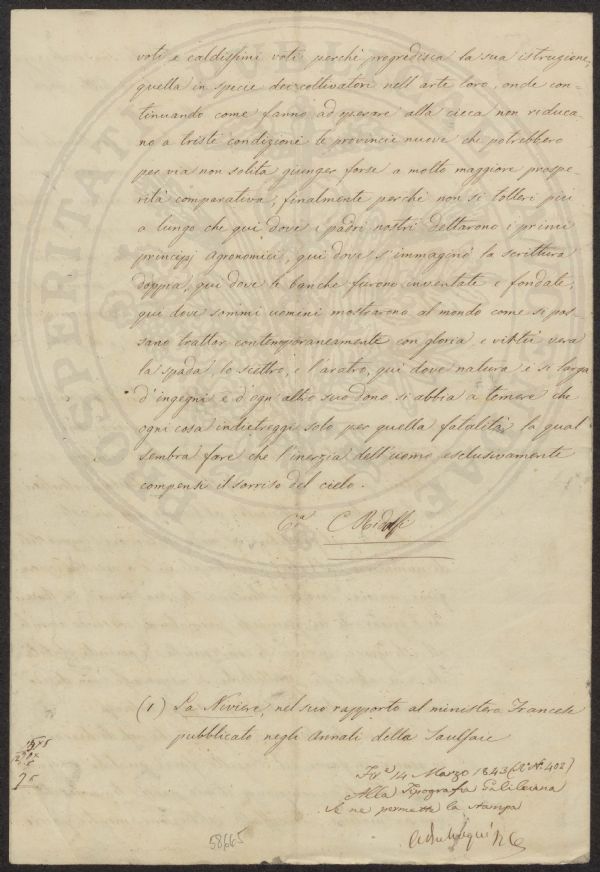 voti e caldissimi voti perchè progredisca la sua istruzione,
quella in specie dei coltivatori nell'arte loro, onde con-
tinuando come fanno ad operare alla cieca non riduca-
no a triste condizioni le provincie nuove che potrebbero
per via non solita giunger forse a molto maggiore prospe-
rità comparativa; finalmente perchè non si tolleri più
a lungo che qui dove i padri nostri dettarono i primi
principj agronomici, qui dove s'immaginò la scrittura
doppia, qui dove le banche furono inventate e fondate,
qui dove sommi uomini mostrarono al mondo come si pos-
sano trattar contemporaneamente con gloria e virtù vera
la spada, lo scettro, e l'aratro, qui dove natura è sì larga
d'ingegni e d'ogn'altro suo dono si abbia a temere che
ogni cosa indietreggi solo per quella fatalità la qual
sembra fare che l'inerzia dell'uomo esclusivamente
compensi il sorriso del cielo.
C. Ridolfi
(1) La Niviere, nel suo rapporto al ministero Francese
pubblicato negli Annali della Saulsaie
14 Marzo 1843 (N.º 402)
Alla Tipografia Galileiana
Se ne permette la stampa
58665
PROSPERITATI PUBLICAE